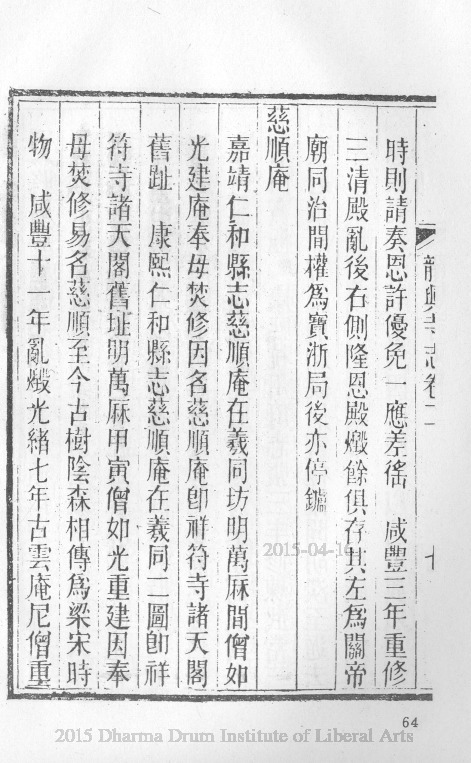 龍興寺志卷二 十
時則請奏恩許優免一應差徭 咸豐三年重修
三清殿亂後右側隆恩殿燬餘俱存其左爲關帝
廟同治間權爲寶浙局後亦停鑪
慈順庵
嘉靖仁和縣志慈順庵在義同坊明萬厤間僧如
光建庵奉母焚修因名慈順庵卽祥符寺諸天閣
舊趾 康熙仁和縣志慈順庵在義同二圖卽祥
符寺諸天閣舊址明萬厤甲寅僧如光重建因奉
母焚修易名慈順至今古樹陰森相傳爲梁宋時
物 咸豐十一年亂燬光緒七年古雲庵尼僧重
2015-04-16
64
2015 Dharma Drum Institute of Liberal Arts